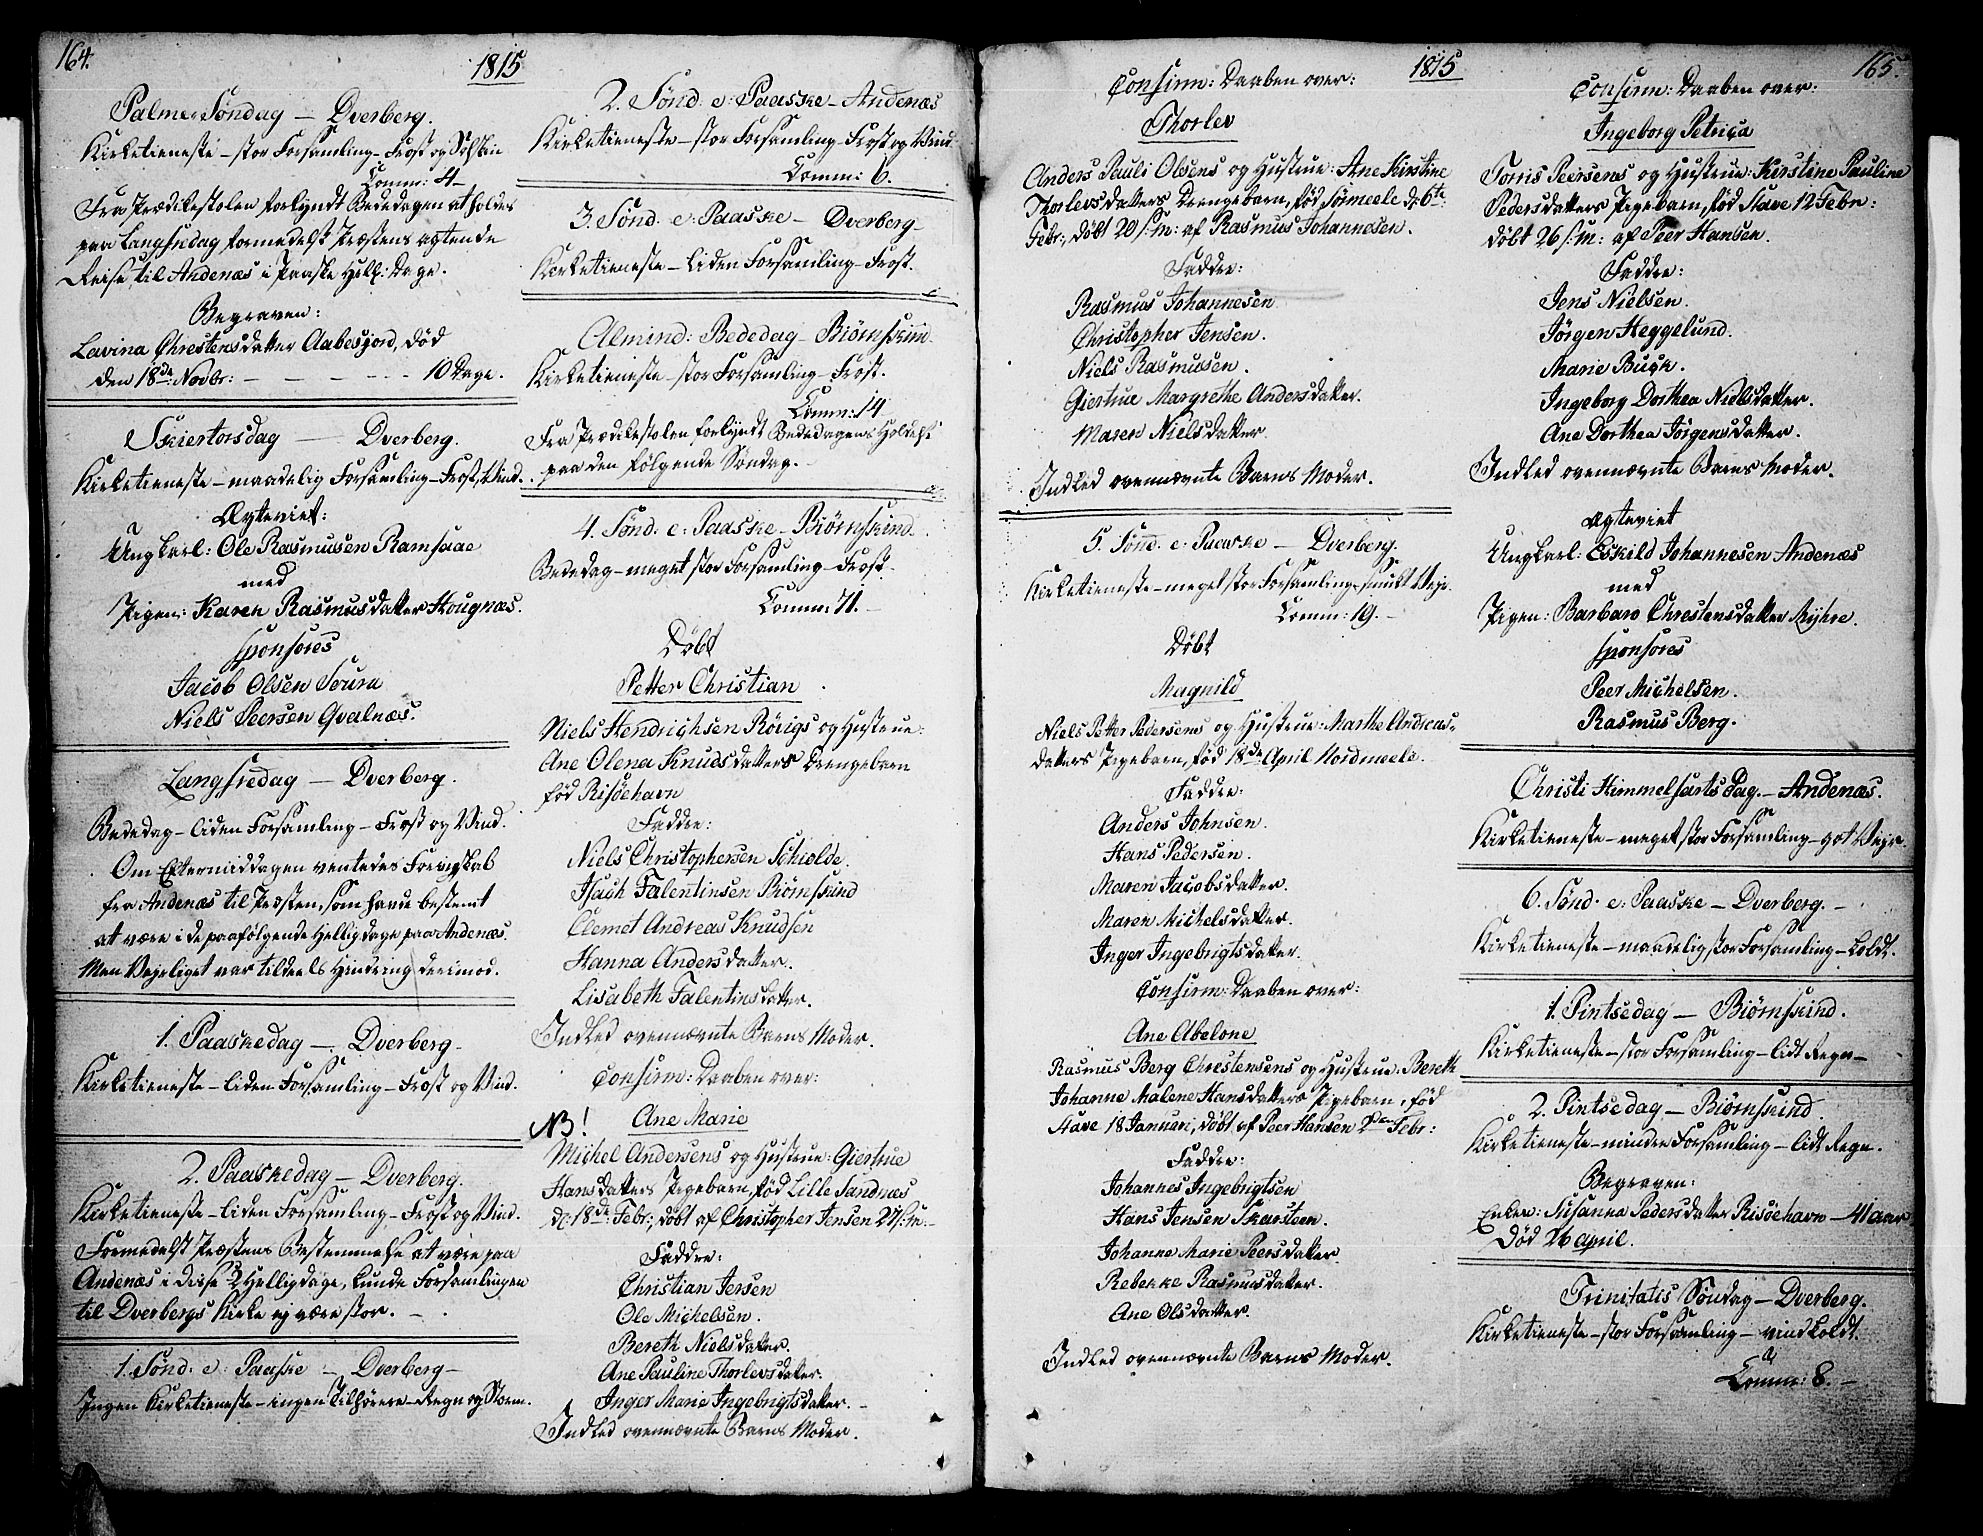 164.
1815
Palme Søndag – Dverberg.
Kirketieneste – stor Forsamling – Frost og Solskin
Comm: 4 –
Fra Prædikestolen forlyndt Bededagen at holdes
paa Langfredag formedelst Præstens agtende
Reise til Andenæs i Paaske Hell: Dage.
Begraven:
Lavina Chrestensdatter Aabesjord, død
den 18de Novbr: – – – – – – 10 Dage.
Skiertorsdag – Dverberg.
Kirketieneste – maadelig Forsamling – Frost, Vind.
Ægteviet:
Ungkarl: Ole Rasmusen Ramsaae
med
Pigen: Karen Rasmusdatter Hougnæs.
sponsores
Jacob Olsen Soura
Niels Peersen Qvalnæs.
Langfredag – Dverberg.
Bededag – liden Forsamling – Frost og Vind.
Om Eftermiddagen ventedes
fra Andenæs til Præsten, som havde bestemt
at være i de paafølgende Helligdage paa Andenæs.
Men Vejrliget var tildeels Hindring derimod.
1. Paaskedag – Dverberg –
Kirketieneste – liden Forsamling – Frost og Vind.
2. Paaskedag – Dverberg.
Kirketieneste – liden Forsamling – Frost og Vind.
Formedelst Præstens Bestemmelse at være paa
Andenæs i disse 2 Helligdage, kunde Forsamlingen
til Dverbergs Kirke ej være stor. –
1. Sønd. e: Paaske – Dverberg –
Ingen Kirketieneste – ingen Tilhørere – Regn og Storm.
2. Sønd. e: Paaske – Andenæs
Kirketieneste – stor Forsamling – Frost og Vind
Comm: 6.
3. Sønd. e: Paaske – Dverberg –
Kirketieneste – liden Forsamling – Frost.
Almind: Bededag – Biørnskind.
Kirketieneste – stor Forsamling – Frost.
Comm: 14
Fra Prædikestolen forlyndt Bededagens Holdelse
paa den følgende Søndag. –
4. Sønd. e: Paaske – Biørnskind.
Bededag – meget stor Forsamling – Frost –
Comm: 71. –
Døbt
Petter Christian
Niels Hendrichsen Rörigs og Hustrue:
Ane Olena Knudsdatters Drengebarn
fød Risöehavn
Faddre:
Niels Christophersen Schiolde.
Isach Falentinsen Biørnskind
Clemet Andreas Knudsen
Hanna Andersdatter.
Lisabeth Falentinsdatter.
Indled ovennævnte Barns Moder.
Confirm: Daaben over:
NB! Ane Marie
Michel Andersens og Hustrue: Giertrue
Hansdatters Pigebarn, fød Lille Sandnæs
d: 18de Febr:, døbt af Christopher Jensen 27 s: m: –
Faddre:
Christian Jersen
Ole Michelsen.
Bereth Nielsdatter.
Ane Pauline Thorlevsdatter.
Inger Marie Ingebrigtsdatter. –
Indled ovennævnte Barns Moder.
1815
Confirm: Daaben over:
Thorlev
Anders Pauli Olsens og Hustrue: Ane Kirstine
Thorlevsdatters Drengebarn, fød Sørmeele d: 6te
Febr:, døbt 20 s: m: af Rasmus Johannesen.
Faddre:
Rasmus Johannesen
Christopher Jensen.
Niels Rasmusen.
Giertrue Margrethe Andersdatter.
Maren Nielsdatter.
Indled ovennævnte Barns Moder.
5. Sønd. e: Paaske – Dverberg.
Kirketieneste – meget stor Forsamling – smukt Vejr.
Comm: 19. –
Døbt
Magnild
Niels Petter Pedersens og Hustrue: Marthe Andreas-
datters Pigebarn, fød 18de April Nordmeele.
Faddre:
Anders Johnsen.
Hans Pedersen.
Maren Jacobsdatter.
Maren Michelsdatter.
Inger Ingebrigtsdatter.
Confirm: Daaben over:
Ane Abelone
Rasmus Berg Chrestensens og Hustrue: Bereth
Johanne Malene Hansdatters Pigebarn, fød
Stave 18 Januari, døbt af Peer Hansen 2den Febr:
Faddre:
Johannes Ingebrigtsen
Hans Jensen Skarsteen.
Johanne Marie Peersdatter
Rebekke Rasmusdatter.
Ane Olsdatter.
Indled ovennævnte Barns Moder.
165.
Confirm: Daaben over:
Ingeborg Petrica
Torris Peersens og Hustrue: Kirstine Pauline
Pedersdatters Pigebarn, fød Stave 12 Febr:
døbt 26 s: m: af Peer Hansen.
Faddre:
Jens Nielsen.
Jörgen Heggelund.
Marie Bugh.
Ingeborg Dorthea Nielsdatter.
Ane Dorthea Jörgensdatter.
Indled ovennævnte Barns Moder.
Ægteviet
Ungkarl: Eskild Johannesen Andenæs
med
Pigen: Barbaro Chrestensdatter Myhre.
sponsores
Peer Michelsen.
Rasmus Berg.
Christi Himmelfarts Dag. – Andenæs.
Kirketieneste – meget stor Forsamling – got Vejr.
6. Sønd. e: Paaske – Dverberg. –
Kirketieneste – maadelig stor Forsamling – Koldt.
1. Pintsedag – Biørnskind.
Kirketieneste – stor Forsamling – lidt Regn –
2. Pintsedag – Biørnskind.
Kirketieneste – mindre Forsamling – lidt Regn.
Begraven:
Enken: Susanna Pedersdatter Risöehavn – 41 aar
Død 26 april.
Trinitatis Søndag – Dverberg.
Kirketieneste – stor Forsamling – vind koldt.
Comm: 8. –